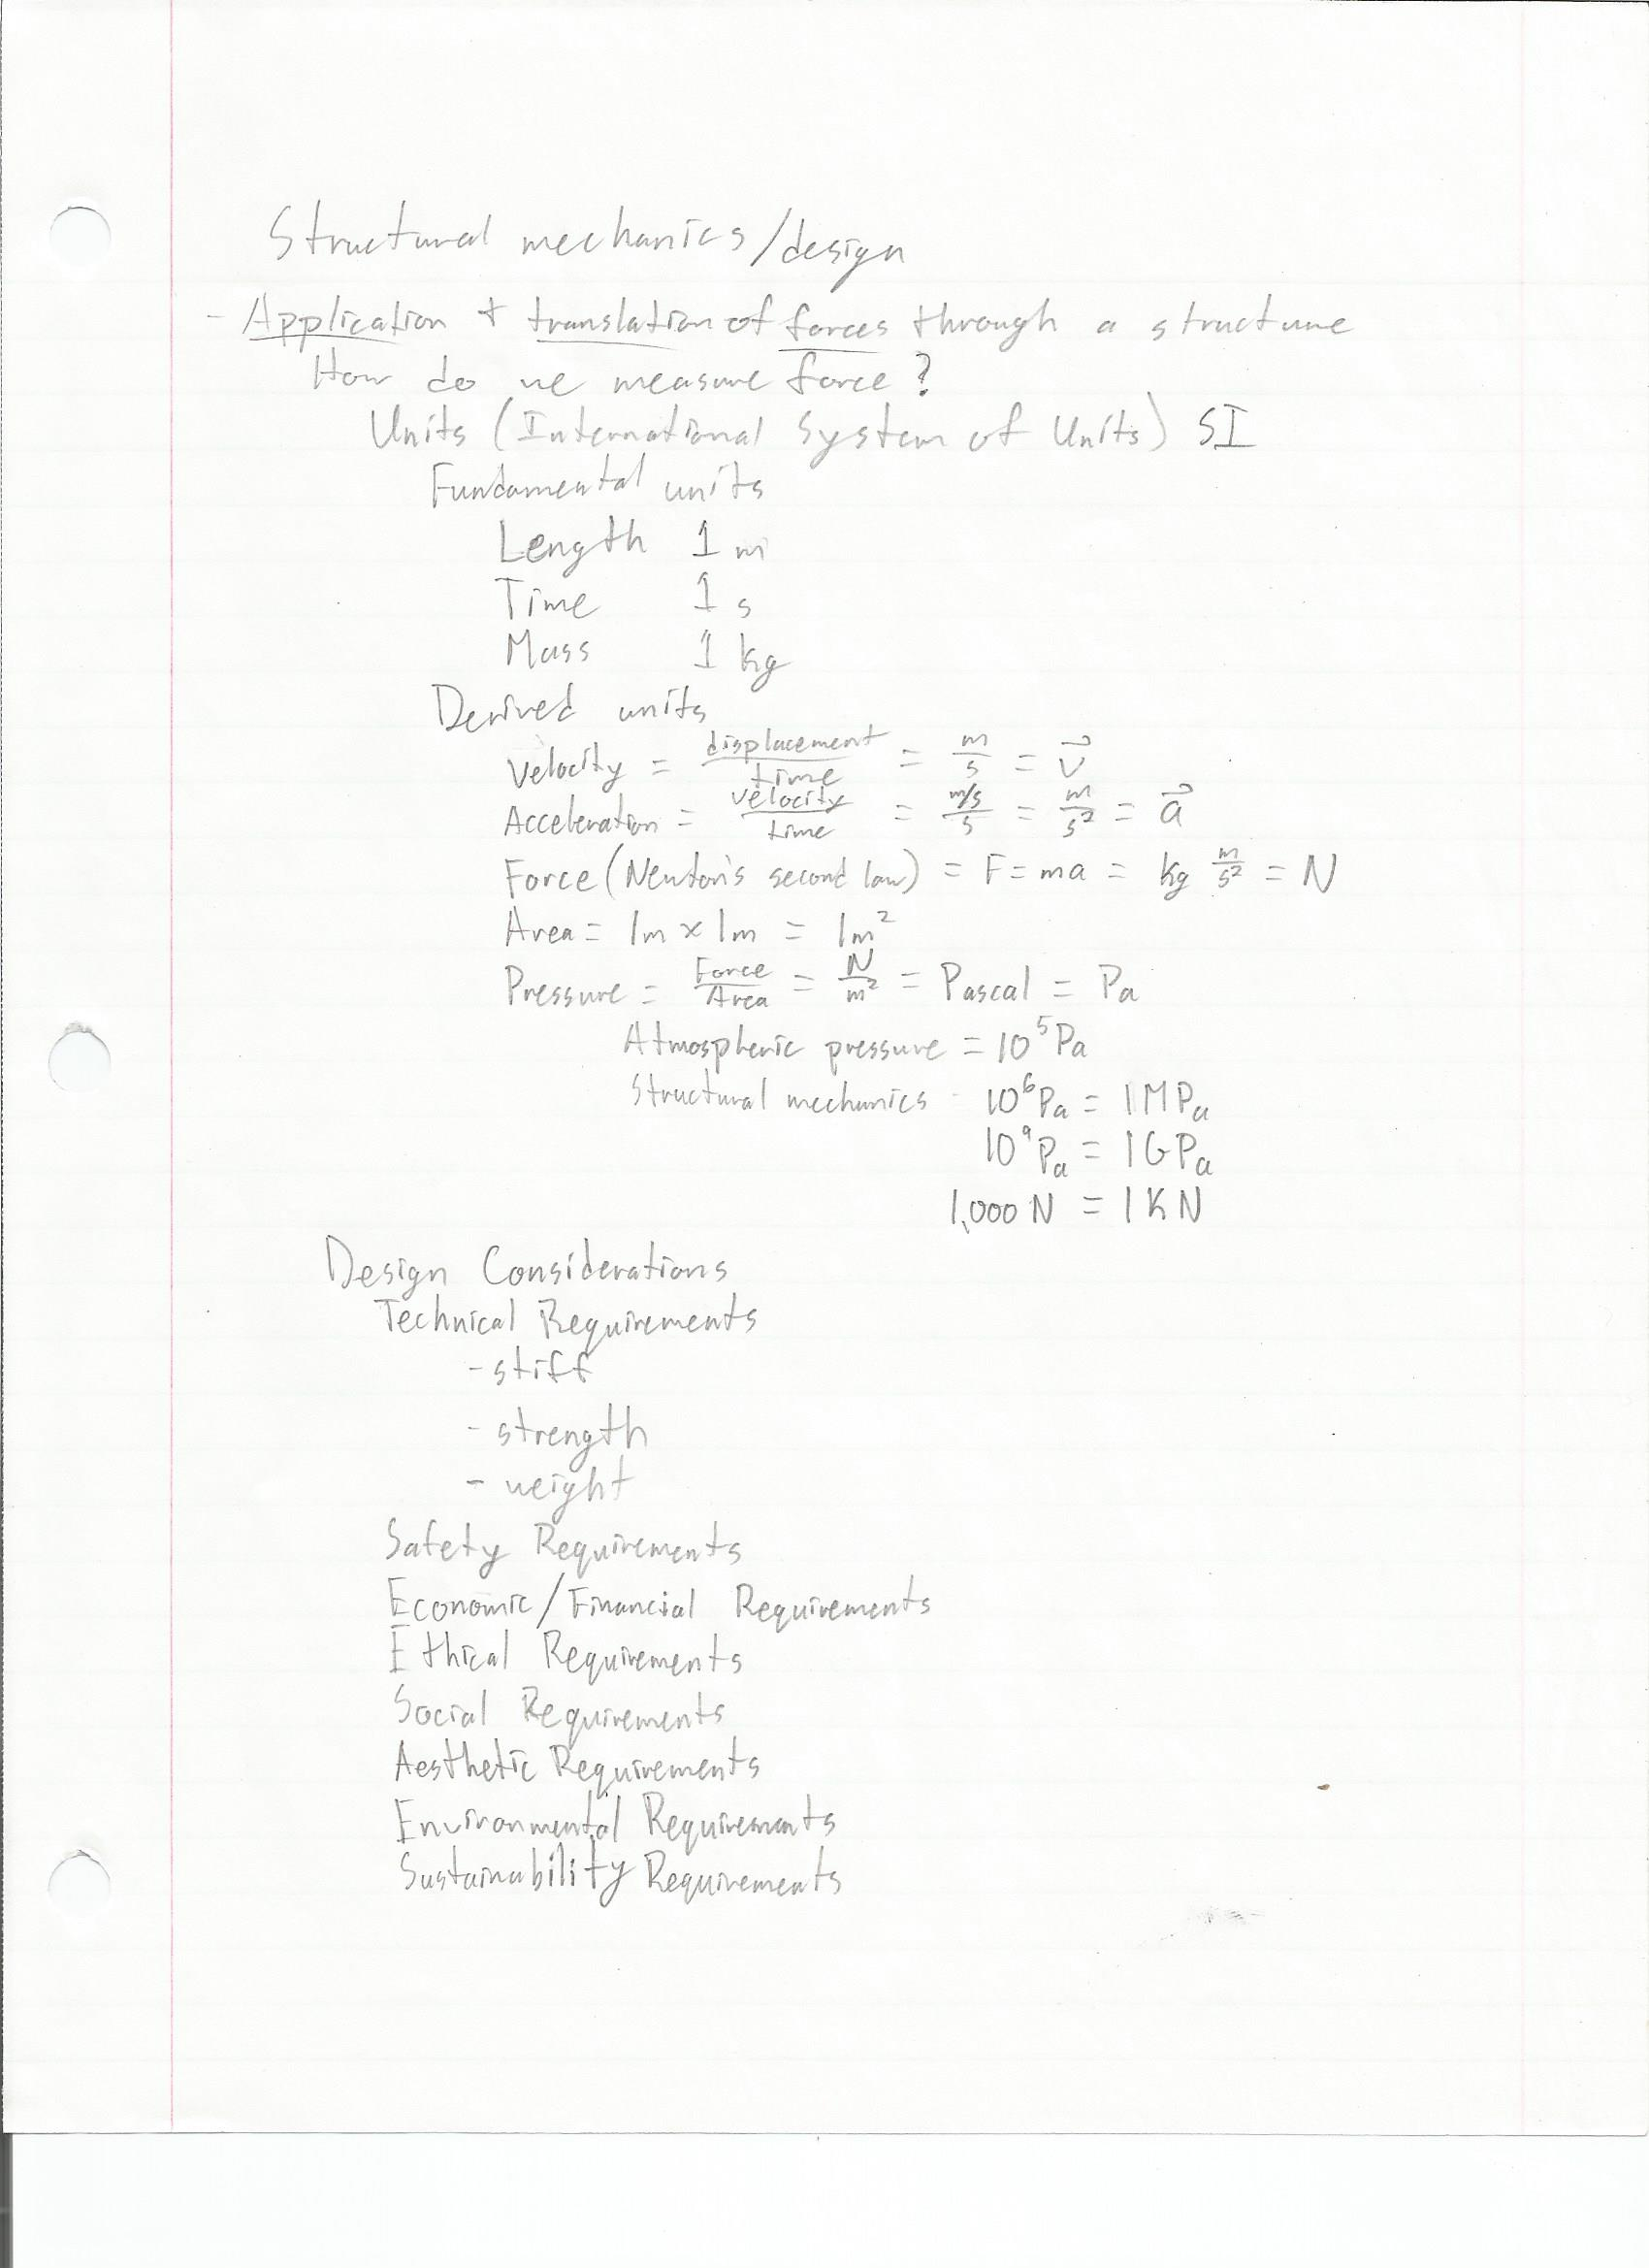 Structural mechanics/design
- Application + translation of forces through a structure
How do we measure force?
Units (International System of Units) SI
Fundamental units
Length 1 m
Time 1 s
Mass 1 kg
Derived units
Velocity = displacement/time = m/s = v⃗
Acceleration = velocity/time = m/s/s = m/s² = a⃗
Force (Newton's second law) = F = ma = kg m/s² = N
Area = 1m × 1m = 1m²
Pressure = Force/Area = N/m² = Pascal = Pa
Atmospheric pressure = 10⁵ Pa
Structural mechanics - 10⁶ Pa = 1 MPa
10⁹ Pa = 1 GPa
1,000 N = 1 KN
Design Considerations
Technical Requirements
- stiff
- strength
- weight
Safety Requirements
Economic/Financial Requirements
Ethical Requirements
Social Requirements
Aesthetic Requirements
Environmental Requirements
Sustainability Requirements